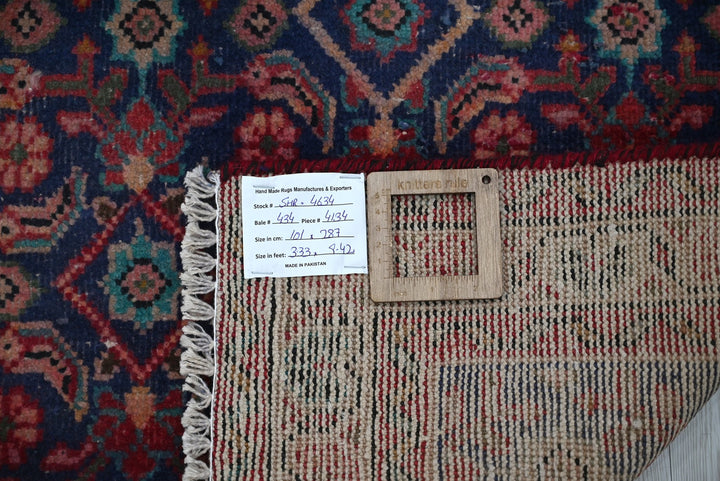 Hand Made Rugs Manufactures & Exporters
Stock # SHR - 4634
Bale # 434 Piece # 4134
Size in cm: 101 x 287
Size in feet: 3.33 x 9.42
MADE IN PAKISTAN
knitters mile